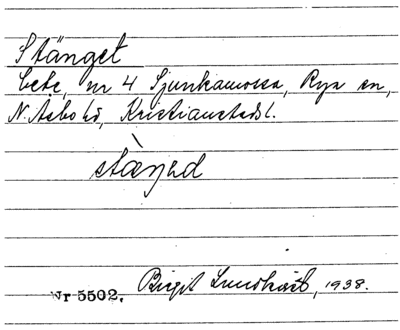 Stänget
bete, nr 4 Sjunkamossa, Rya sn,
N. Åsbo hd, Kristianstads l.
stæ̀ŋəd
Nr 5502. Birgit Lundkvist, 1938.